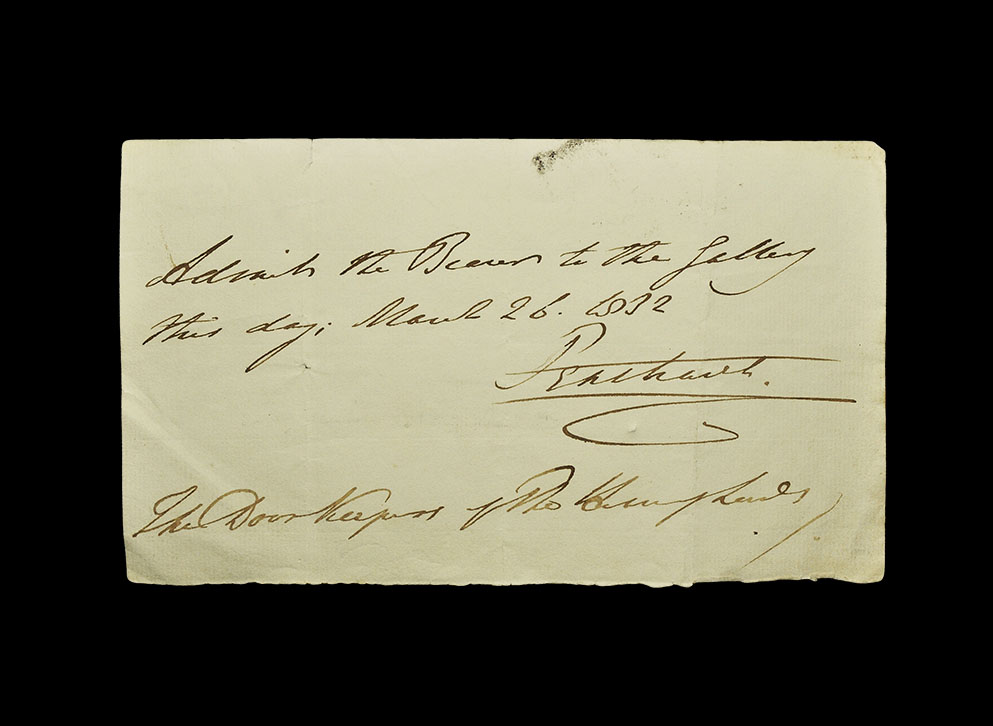 Admit the Bearer to the Gallery
this day, March 26. 1832
Penshurst.
The Door Keepers of The House of Lords